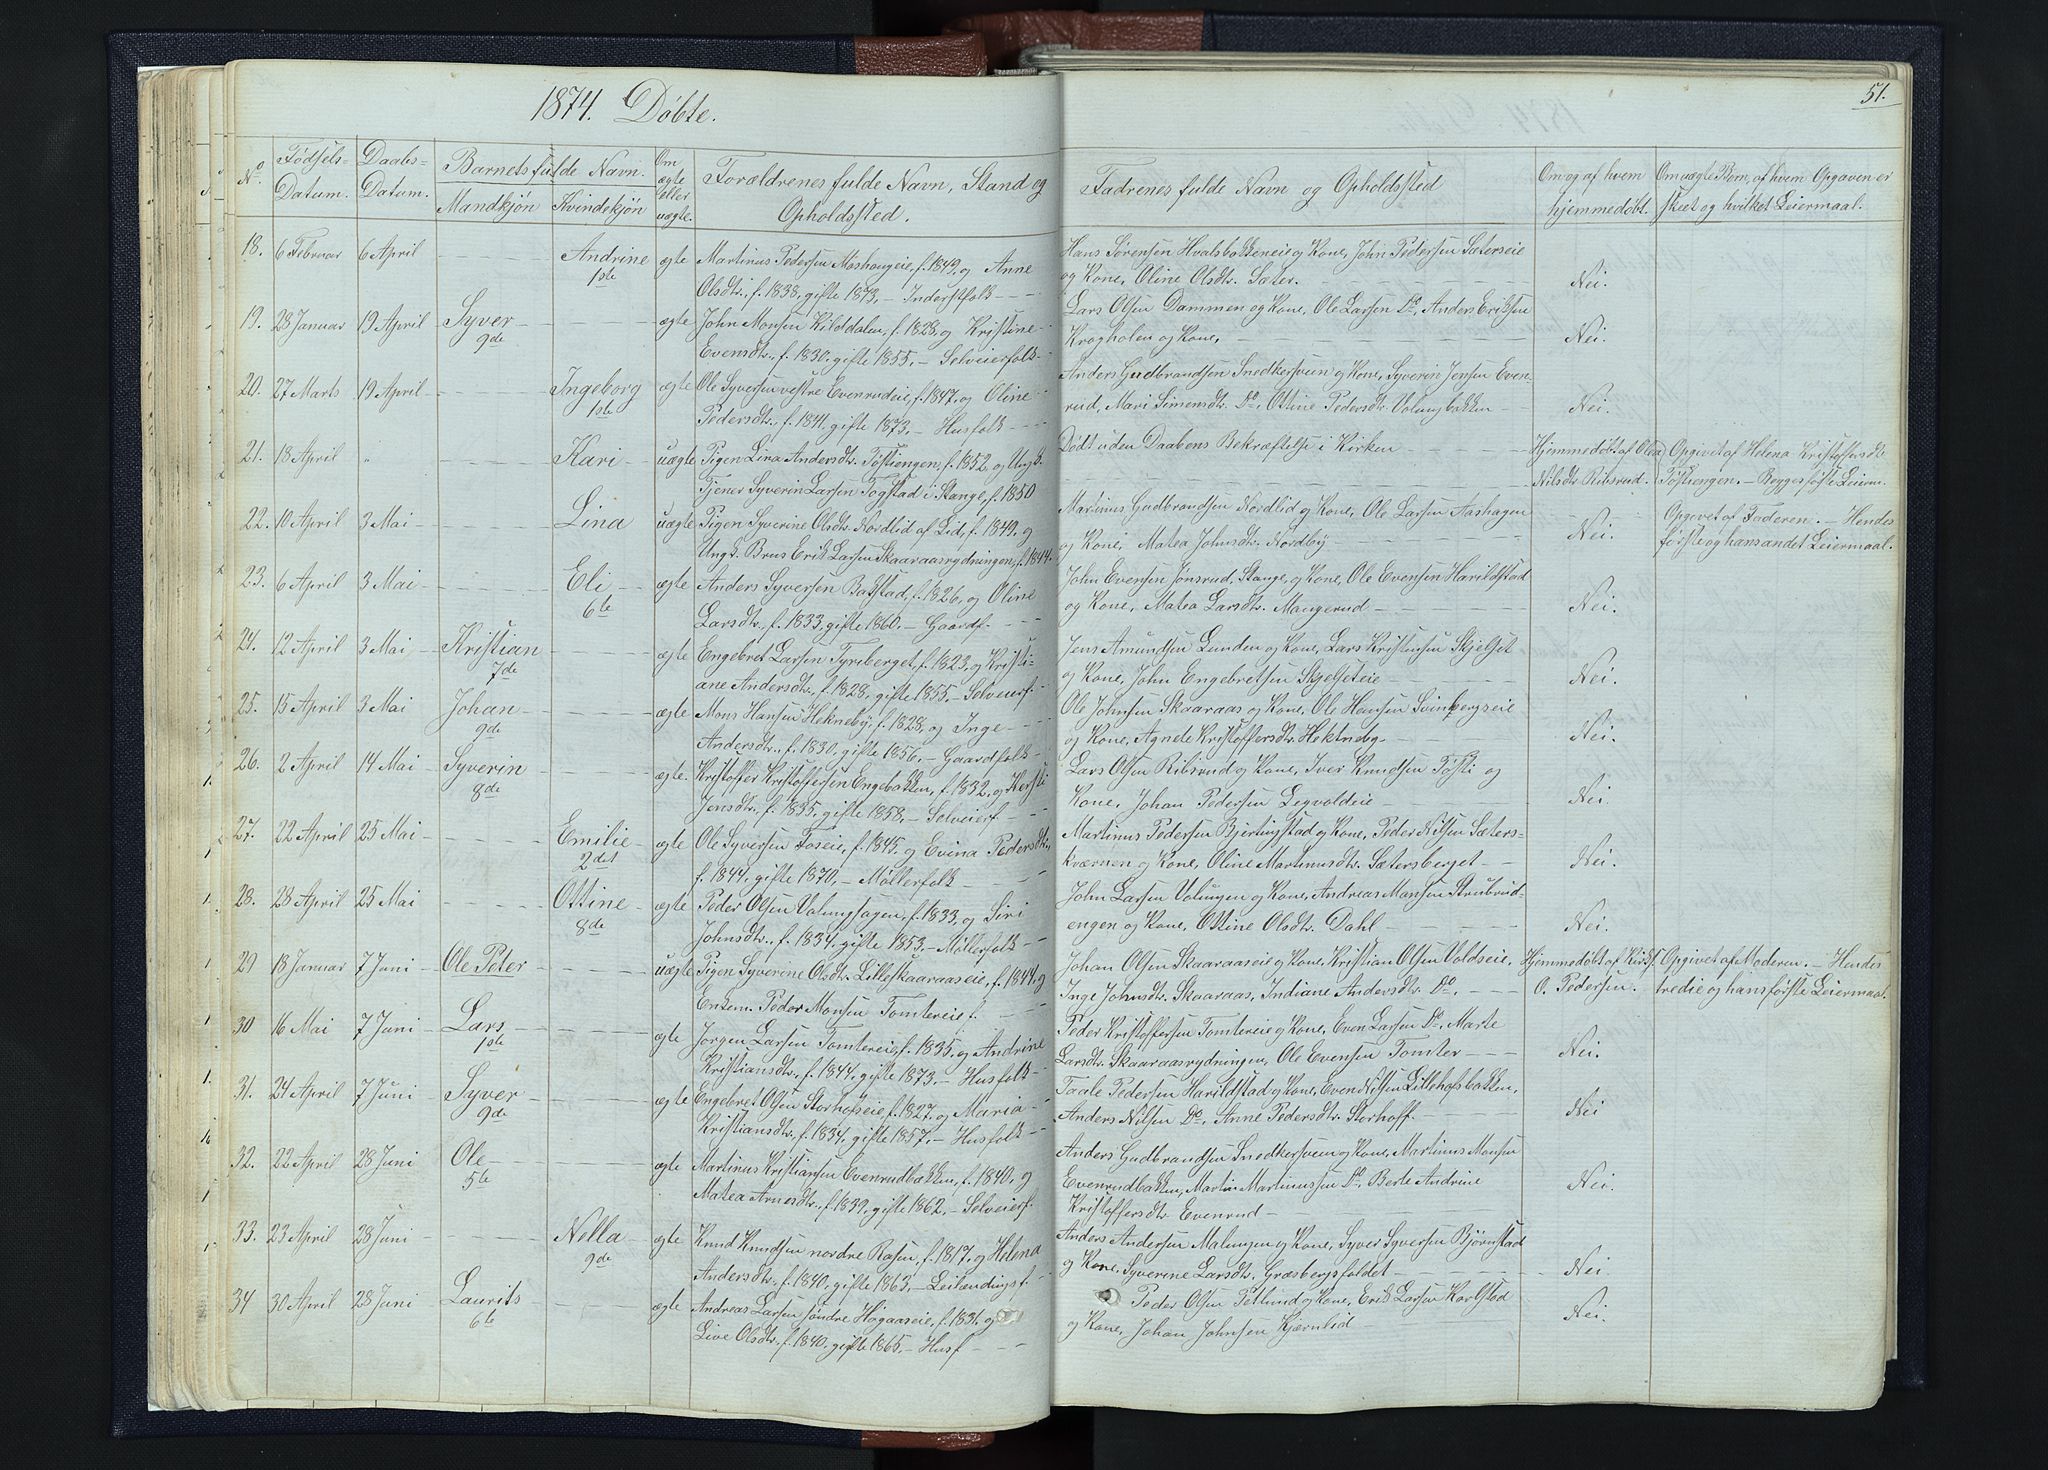 1874. Döbte.
No. Födsels-Datum. Daabs-Datum. Barnets fulde Navn. Mandkjön Kvindekjön Om ægte eller uægte. Forældrenes fulde Navn, Stand og Opholdssted.
18. 6 Februar 6 April Andrine 1ste ægte Martinus Pedersen Mashaugeie, f. 1849, og Anne
Olsdtr., f. 1838, gifte 1873. – Inderstfolk
19. 28 Januar 19 April Syver 9de ægte John Monsen Kilddalen, f. 1828, og Kristine
Evensdtr., f. 1830, gifte 1855. – Selveierfolk
20. 27 Marts 19 April Ingeborg 1ste ægte Ole Syversen vestre Evenrudeie, f. 1847, og Oline
Pedersdtr., f. 1841, gifte 1873. – Husfolk
21. 18 April " Kari uægte Pigen Lina Andersdtr. Töstiengen, f. 1852, og Ungk.
Tjener Syverin Larsen Togstad i Stange, f. 1850
22. 10 April 3 Mai Lina uægte Pigen Syverine Olsdtr. Nordlid af Lid, f. 1849, og
Ungk. Brus Erik Larsen Skaaraasrydningen, f. 1844.
23. 6 April 3 Mai Eli 6te ægte Anders Syversen Batstad, f. 1826, og Oline
Larsdtr., f. 1833, gifte 1860. – Gaardf.
24. 12 April 3 Mai Kristian 7de ægte Engebret Larsen Tyriberget, f. 1823, og Kristi-
ane Andersdtr., f. 1828, gifte 1855. – Selveierf.
25. 15 April 3 Mai Johan 9de ægte Mons Hansen Hekneby, f. 1828, og Inge
Andersdtr., f. 1830, gifte 1856. – Gaardfolk
26. 2 April 14 Mai Syverin 8de ægte Kristoffer Kristoffersen Engebakken, f. 1832, og Kersti
Jensdtr., f. 1835, gifte 1858. – Selveierf.
27. 22 April 25 Mai Emilie 2det ægte Ole Syversen Foseie, f. 1845, og Evina Pedersdtr.,
f. 1844, gifte 1870. – Möllerfolk
28. 28 April 25 Mai Ottine 8de ægte Peder Olsen Volungsagen, f. 1833, og Siri
Johnsdtr., f. 1834, gifte 1853. – Möllerfolk
29 18 Januar 7 Juni Ole Peter uægte Pigen Syverine Olsdtr. Lilleskaaraaseie, f. 1844, og
Enkem. Peder Monsen Tomtereie
30 16 Mai 7 Juni Lars 1ste ægte Jörgen Larsen Tomtereie, f. 1835, og Andrine
Kristiansdtr., f. 1844, gifte 1873. – Husfolk
31. 24 April 7 Juni Syver 9de ægte Engebret Olsen Storhofseie, f. 1827, og Maria
Kristiansdtr., f. 1834, gifte 1857. – Husfolk
32. 22 April 28 Juni Ole 5te ægte Martinus Kristiansen Evenrudbakken, f. 1840, og
Matea Arnesdtr., f. 1839, gifte 1862. – Selveierf.
33. 23 April 28 Juni Nella 9de ægte Knud Knudsen nordre Rasen, f. 1817, og Helena
Andersdtr., f. 1840, gifte 1863. – Leilendingsf.
34 30 April 28 Juni Laurits 6te ægte Andreas Larsen söndre Högaaseie, f. 1831, og
Live Olsdtr., f. 1840, gifte 1865. – Husf.
51.
Fadrenes fulde Navn og Opholdssted Om og af hvem hjemmedöbt. Om uægte Börn, af hvem Opgaven er skeet og hvilket Leiermaal.
Hans Sörensen Hvalsbakkeneie og Kone, John Pedersen Sæterseie
og Kone, Oline Olsdtr. Sæter. Nei.
Lars Olsen Dammen og Kone, Ole Larsen Do, Anders Eriksen
Kragholen og Kone, Nei.
Anders Gudbrandsen Snedkersveen og Kone, Syverin Jensen Even-
rud, Mari Simensdtr. Do, Ottine Pedersdtr. Volungbakken Nei.
Dödt uden Daabens Bekræftelse i Kirken Hjemmedöbt af Olea Opgivet af Helena Kristoffersdtr.
Nilsdtr. Ribsrud. Töstiengen. – Begges förste Leierm.
Martinus Gudbrandsen Nordlid og Kone, Ole Larsen Aashagen Opgivet af Faderen. – Hendes
og Kone, Matea Johnsdtr. Nordby Nei. förste og hans andet Leiermaal.
John Evensen Jönsrud, Stange, og Kone, Ole Evensen Harildstad
og Kone, Matea Larsdtr. Mangerud Nei.
Jens Amundsen Lunden og Kone, Lars Kristensen Skjelset
og Kone, John Engebretsen Skjelseteie Nei.
Ole Johnsen Skaaraas og Kone, Ole Hansen Svinbergseie
og Kone, Agnete Kristoffersdtr. Hekneby Nei.
Lars Olsen Ribsrud og Kone, Iver Knudsen Tösti og
Kone, Johan Pedersen Legvoldeie Nei.
Martinus Pedersen Bjertingstad og Kone, Peder Nilsen Sæters-
kværnen og Kone, Oline Martinusdtr. Sætersberget Nei.
John Larsen Volungen og Kone, Andreas Monsen Strubrud-
engen og Kone, Ottine Olsdtr. Dahl Nei.
Johan Olsen Skaaraaseie og Kone, Kristian Olsen Voldseie, Hjemmedöbt af Kirks. Opgivet af Moderen. – Hendes
Inge Johnsdtr. Skaaraas, Indiane Andersdtr. Do. O. Pedersen. tredie og hans förste Leiermaal.
Peder Kristoffersen Tomtereie og Kone, Even Larsen Do, Marte
Larsdtr. Skaaraasrydningen, Ole Evensen Tomter Nei.
Taale Pedersen Harildstad og Kone, Even Nilsen Lillehofsbakken,
Anders Nilsen Do, Anne Pedersdtr. Storhoff. Nei
Anders Gudbrandsen Snedkersveen og Kone, Martinus Monsen
Evenrudbakken, Martin Martinussen Do, Berte Andrine Nei.
Kristoffersdtr. Evenrud
Anders Andersen Malungen og Kone, Syver Syversen Björnstad
og Kone, Syverine Larsdtr. Græsbergsfoldet Nei.
Peder Olsen Petlund og Kone, Erik Larsen Karlstad
og Kone, Johan Johnsen Kjærnlid Nei.